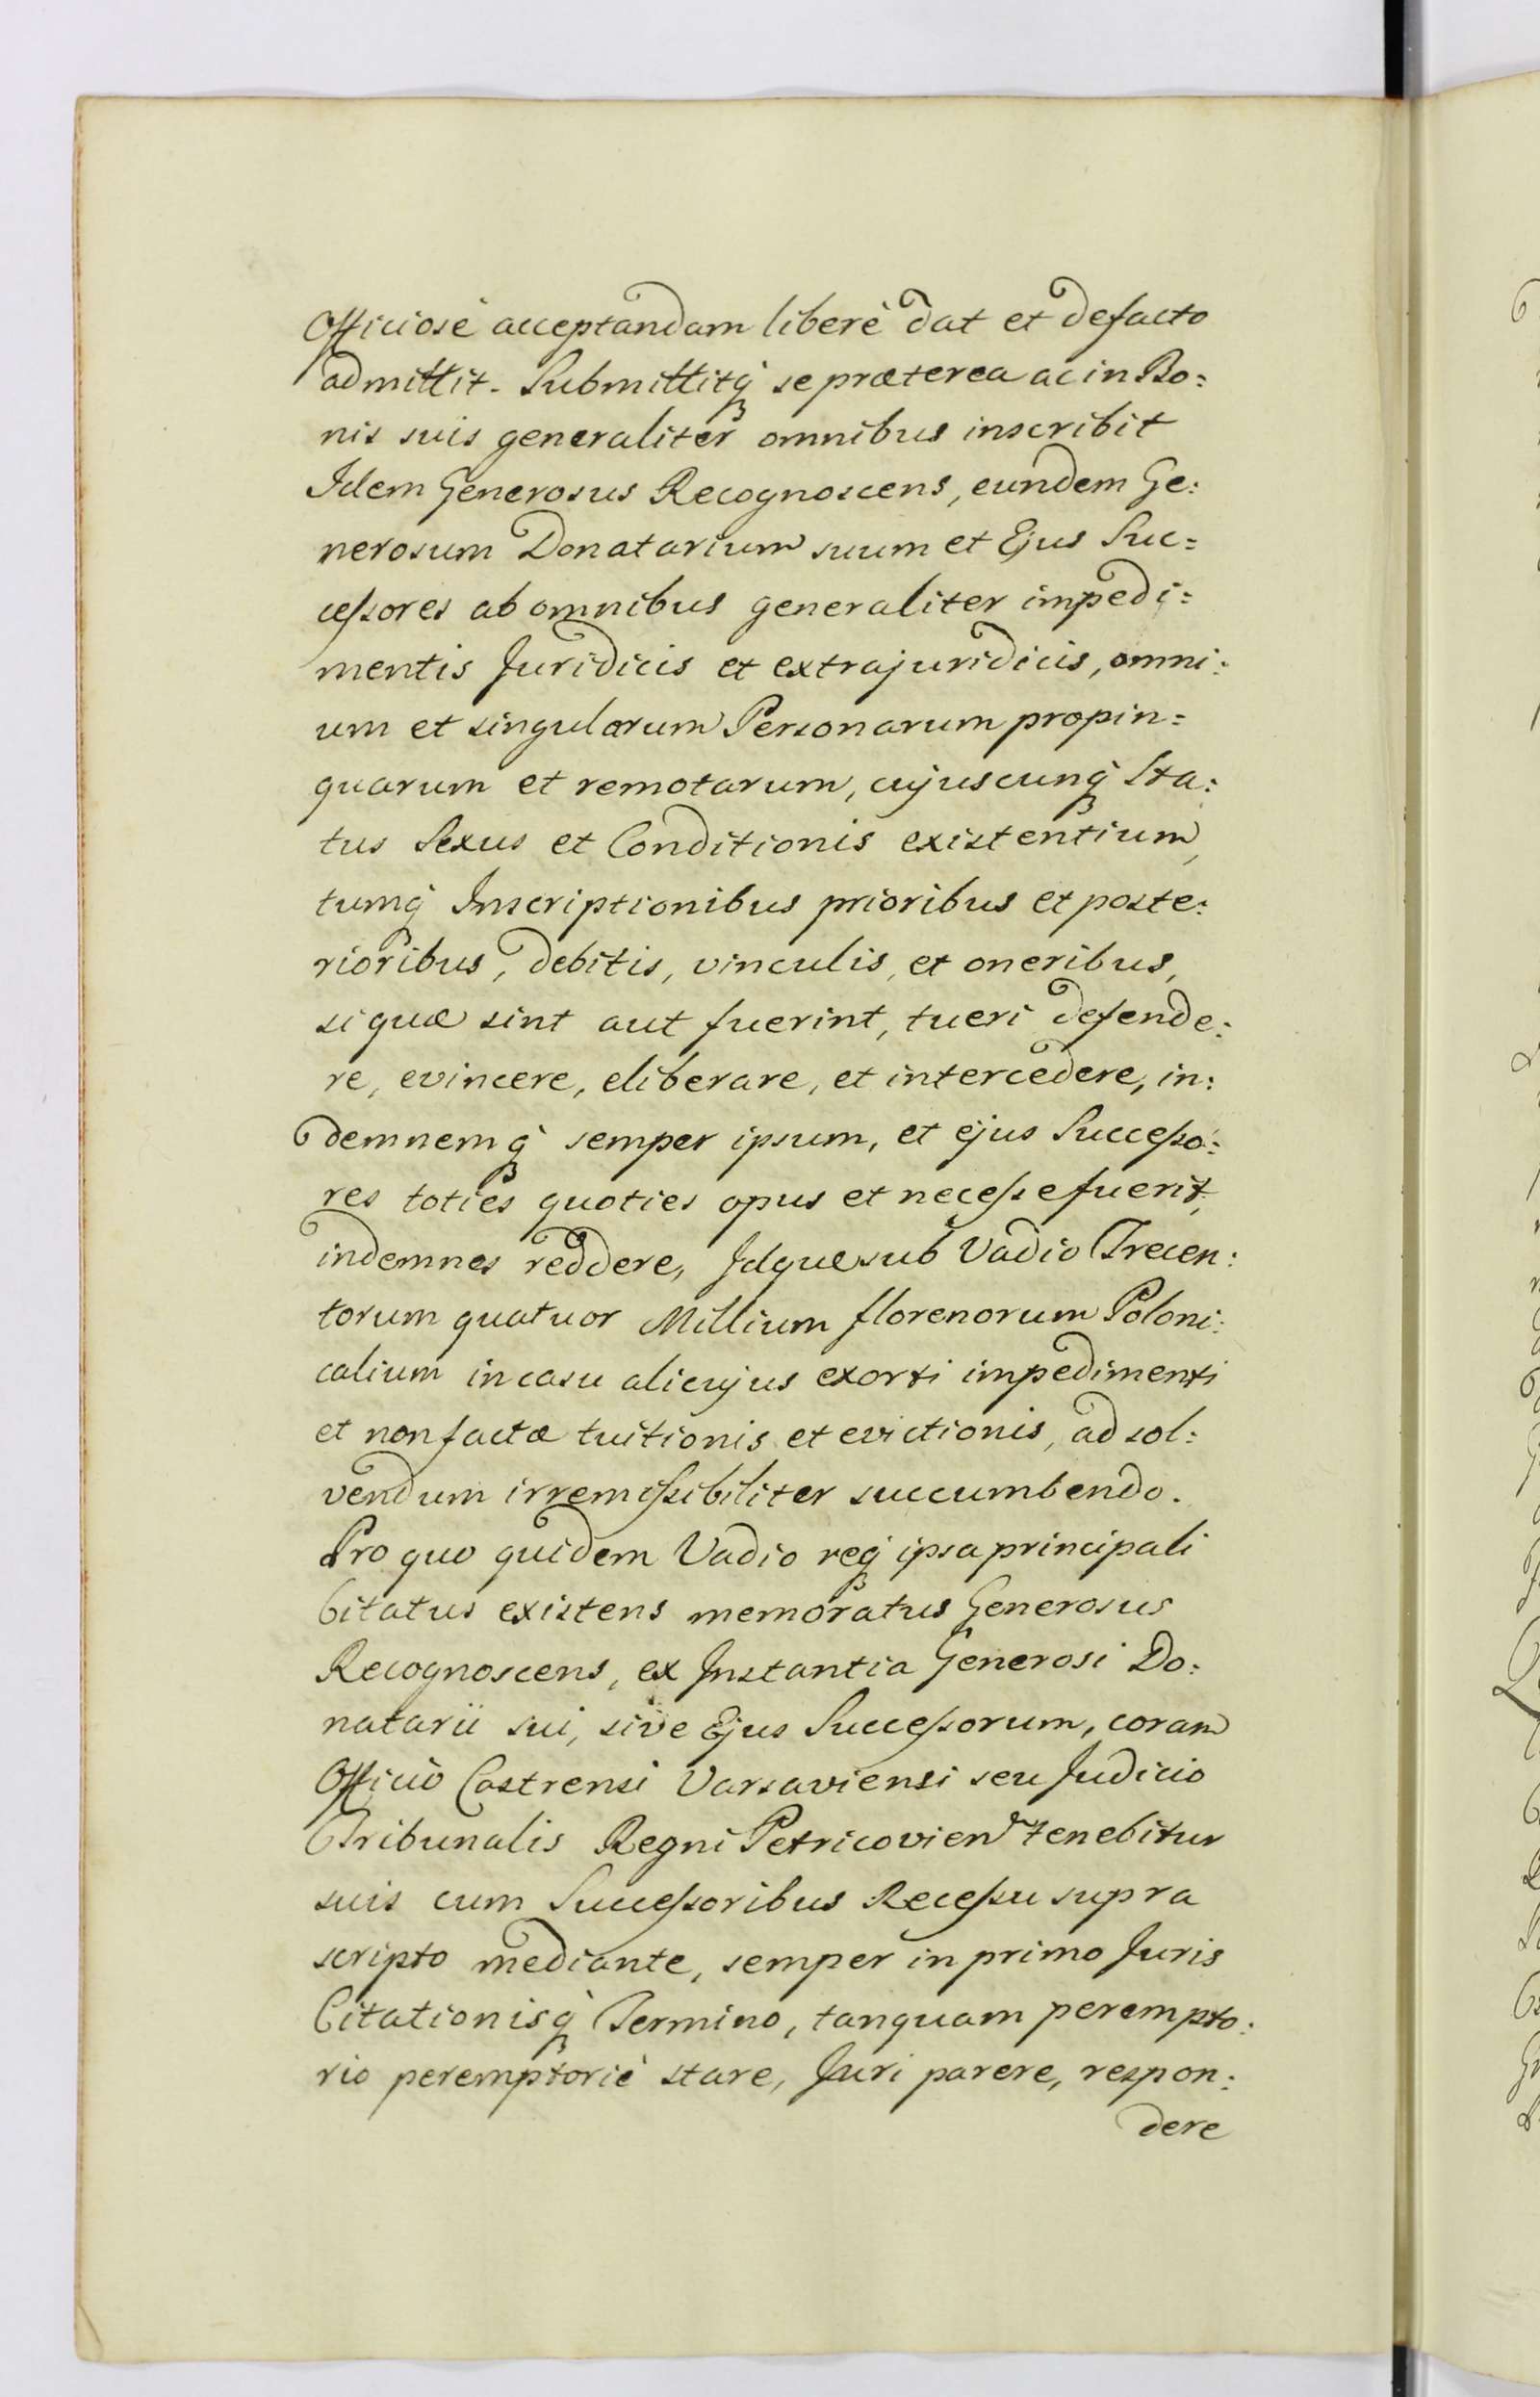 Officiosè acceptandam liberè dat et defacto
admittit. Submittitq́ se præterea ac in Bo:
nis suis generaliter omnibus inscribit
Idem Generosus Recognoscens, eundem Ge:
nerosum Donatarium suum et Ejus Suc=
ceſsores ab omnibus generaliter impedi=
mentis Juridicis et extrajuridicis, omni:
um et singularum Personarum propin=
quarum et remotarum, cujuscunq́ Sta:
tus Sexus et Conditionis existentium,
tumq́ Inscriptionibus prioribus et poste:
rioribus, debitis, vinculis, et oneribus,
siquæ sint aut fuerint, tueri defende:
re, evincere, eliberare, et intercedere, in:
demnemq́ semper ipsum, et ejus Succeſso:
res toties quoties opus et neceſse fuerit,
indemnes reddere, Idque sub Vadio Trecen:
torum quatuor Millium florenorum Poloni:
calium in casu alicujus exorti impedimenti
et non factæ tuitionis et evictionis, ad sol:
vendum irremiſsibiliter succumbendo.
Pro quo quidem Vadio req́ ipsa principali
Citatus existens memoratus Generosus
Recognoscens, ex Instantia Generosi Do:
natarii sui, sive Ejus Succeſsorum, coram
Officio Castrensi Varsaviensi seu Judicio
Tribunalis Regni Petricovien tenebitur
suis cum Succeſsoribus Receſsu supra
scripto mediante, semper in primo Juris
Citationisq́ Termino, tanquam perempto:
rio peremptoriè stare, Juri parere, respon:
dere